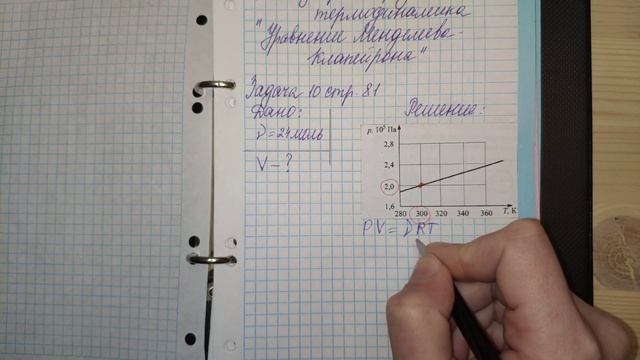 термодинамика
"Уравнение Менделеева-
Клапейрона"
Задача 10 стр. 81
Дано:
Решение:
ν = 24 моль
V - ?
p, 10⁵ Па
2,8
2,4
2,0
1,6
280 300 320 340 360 T, К
PV = νRT